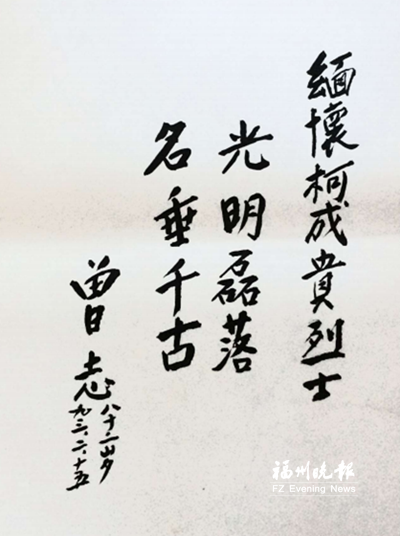 缅懷柯成貴烈士
光明磊落
名垂千古
曾志
八十二岁
九三.二.十五
福州晚报
FZ Evening News